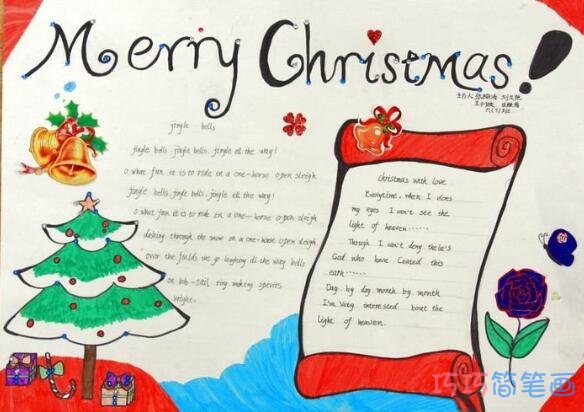 Merry Christmas!
jingle bells
jingle bells, jingle bells, jingle all the way!
O what fun it is to ride in a one-horse open sleigh
jingle bells, jingle bells, jingle all the way!
O what fun it is to ride in a one-horse open sleigh
dashing through the snow on a one-horse open sleigh
over the fields we go laughing all the way bells
on bob-tail ring making spirits
bright.
Christmas with love
Everytime, when I does
my eyes I won't see the
light of heaven......
Though I won't deny
God who have Coated this
earn......
Day by day month by month
I'm Very interested bout the
Light of heaven.
巧巧简笔画